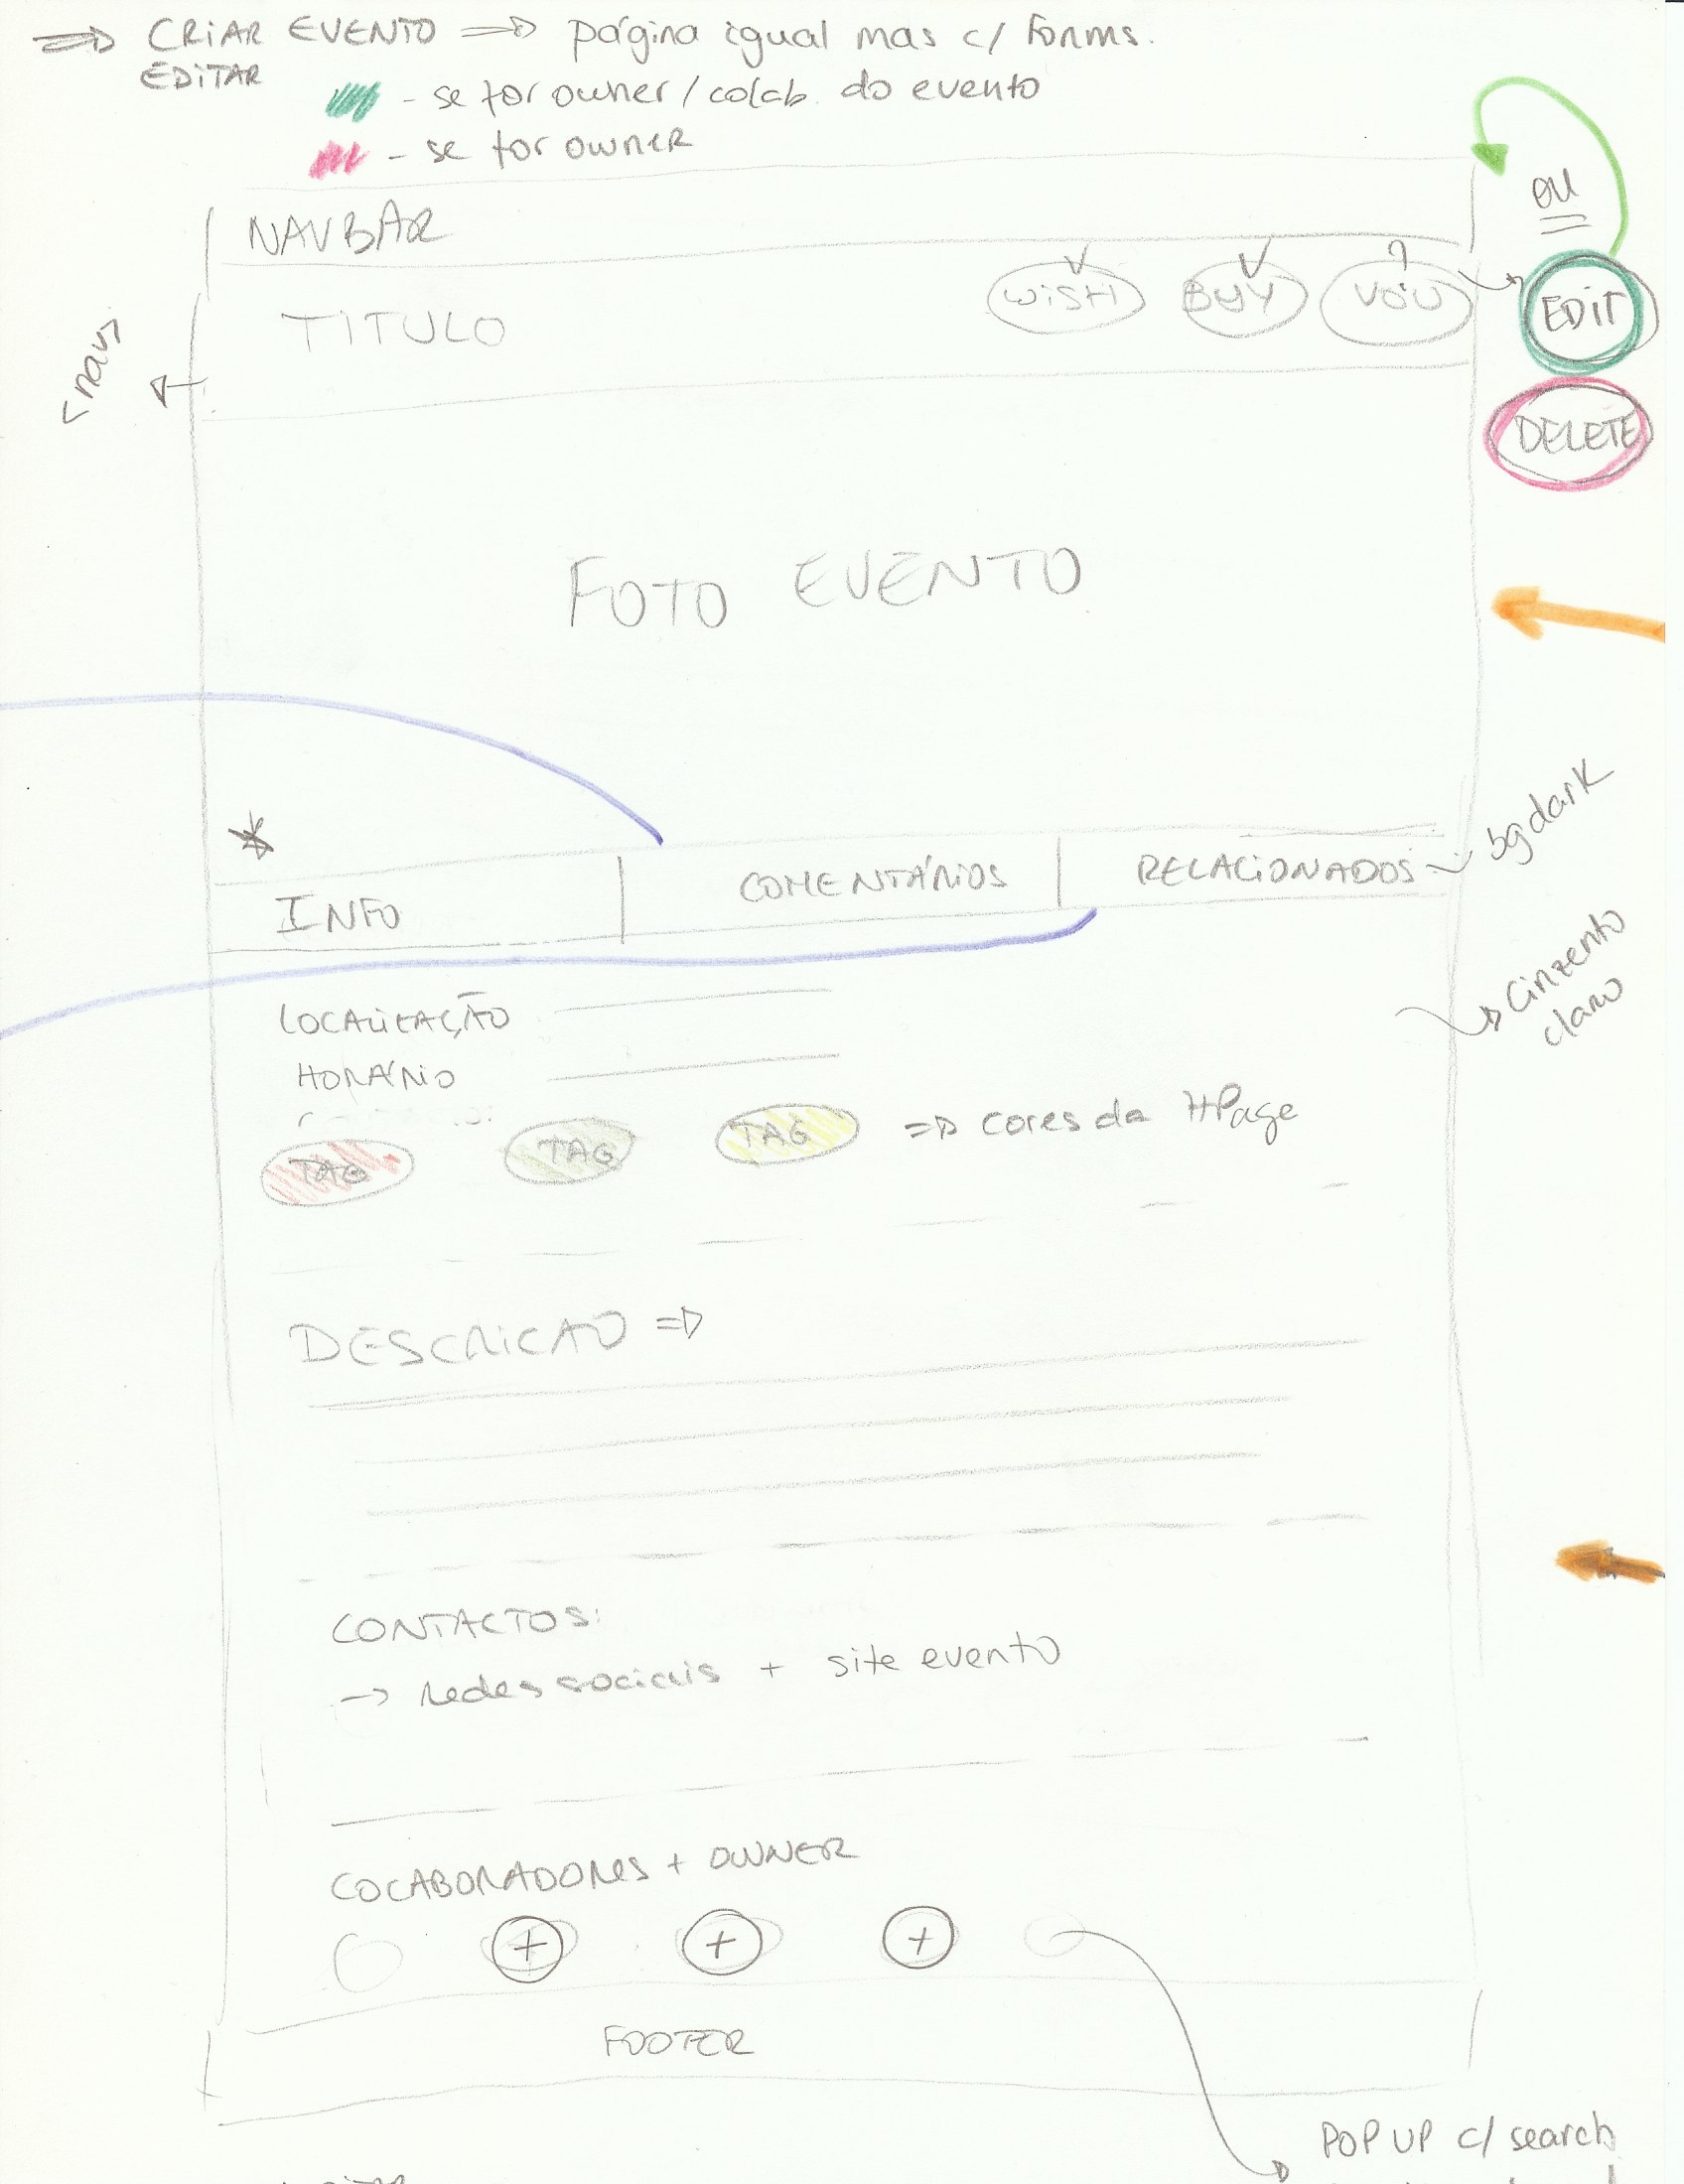 ⇒ CRIAR EVENTO ⇒ página igual mas c/ forms.
EDITAR
- se for owner/colab. do evento
- se for owner
OU
NAVBAR
WISH BUY VOU EDIT
TITULO
<nav>
DELETE
FOTO EVENTO
bg dark
INFO COMENTÁRIOS RELACIONADOS
cinzento
claro
LOCALIZAÇÃO
HORÁRIO
TAG TAG TAG ⇒ cores da HPage
DESCRICAO ⇒
CONTACTOS:
→ redes sociais + site evento
COLABORADORES + OWNER
+ + +
FOOTER
POP UP c/ search